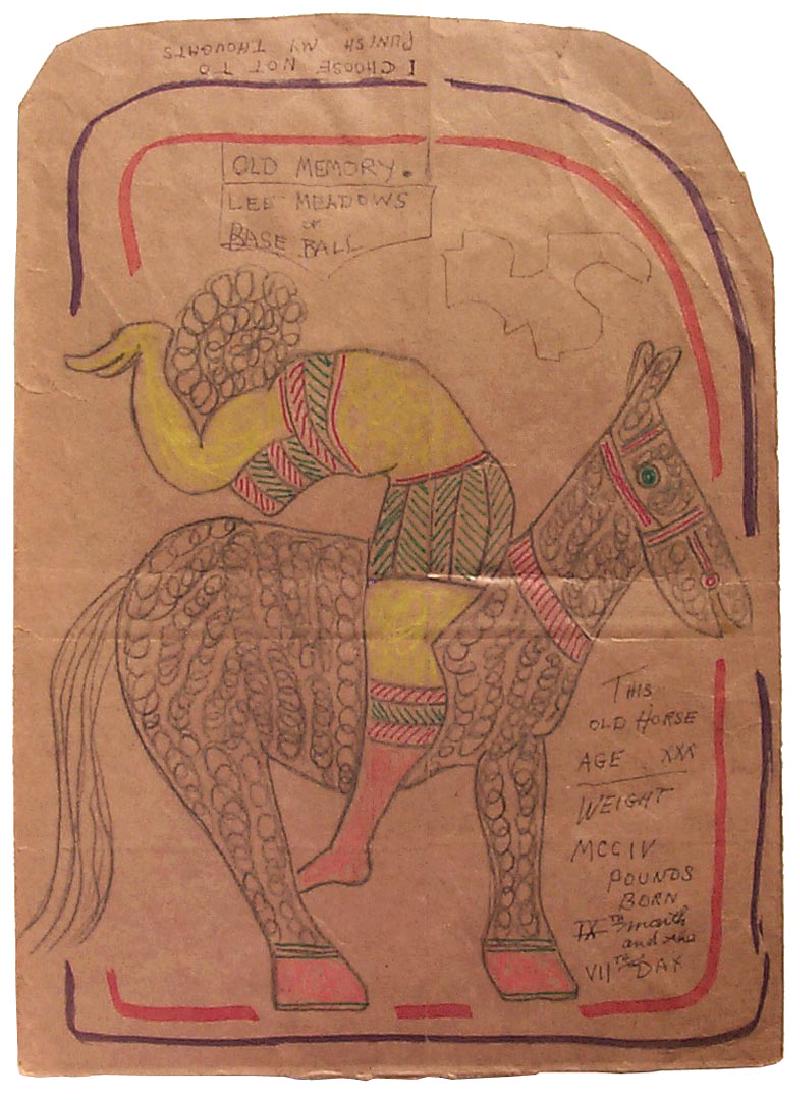 I CHOOSE NOT TO
PUNISH MY THOUGHTS
OLD MEMORY.
LEE MEADOWS
OF
BASE BALL
THIS
OLD HORSE
AGE XXX
WEIGHT
MCCIV
POUNDS
BORN
IX TH month
and the
VII TH DAY